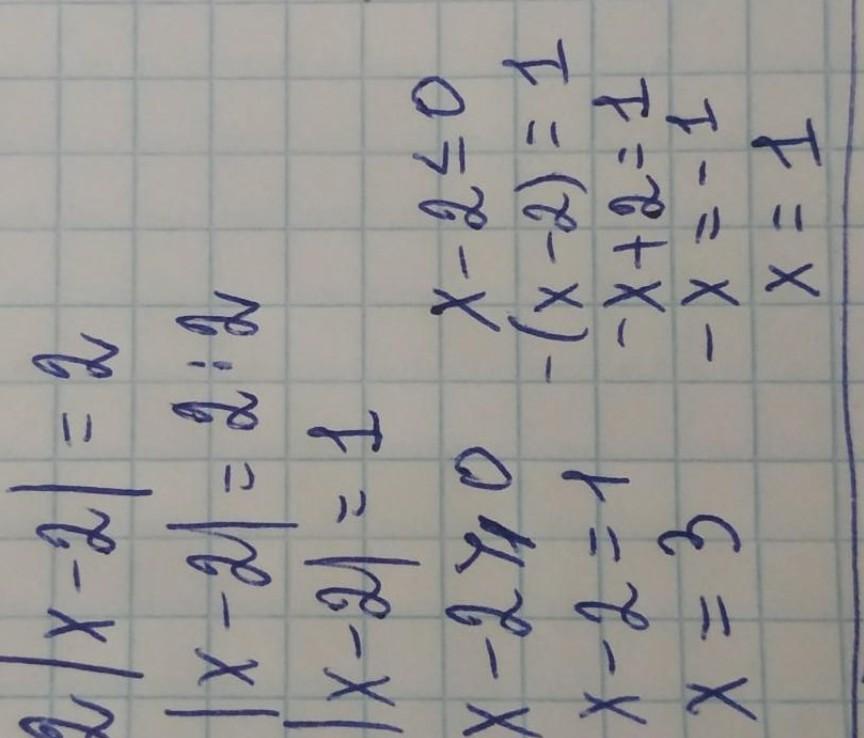 2|x-2|=2
|x-2|=2:2
|x-2|=1
x-2≥0
x-2=1
x=3
x-2≤0
-(x-2)=1
-x+2=1
-x=-1
x=1